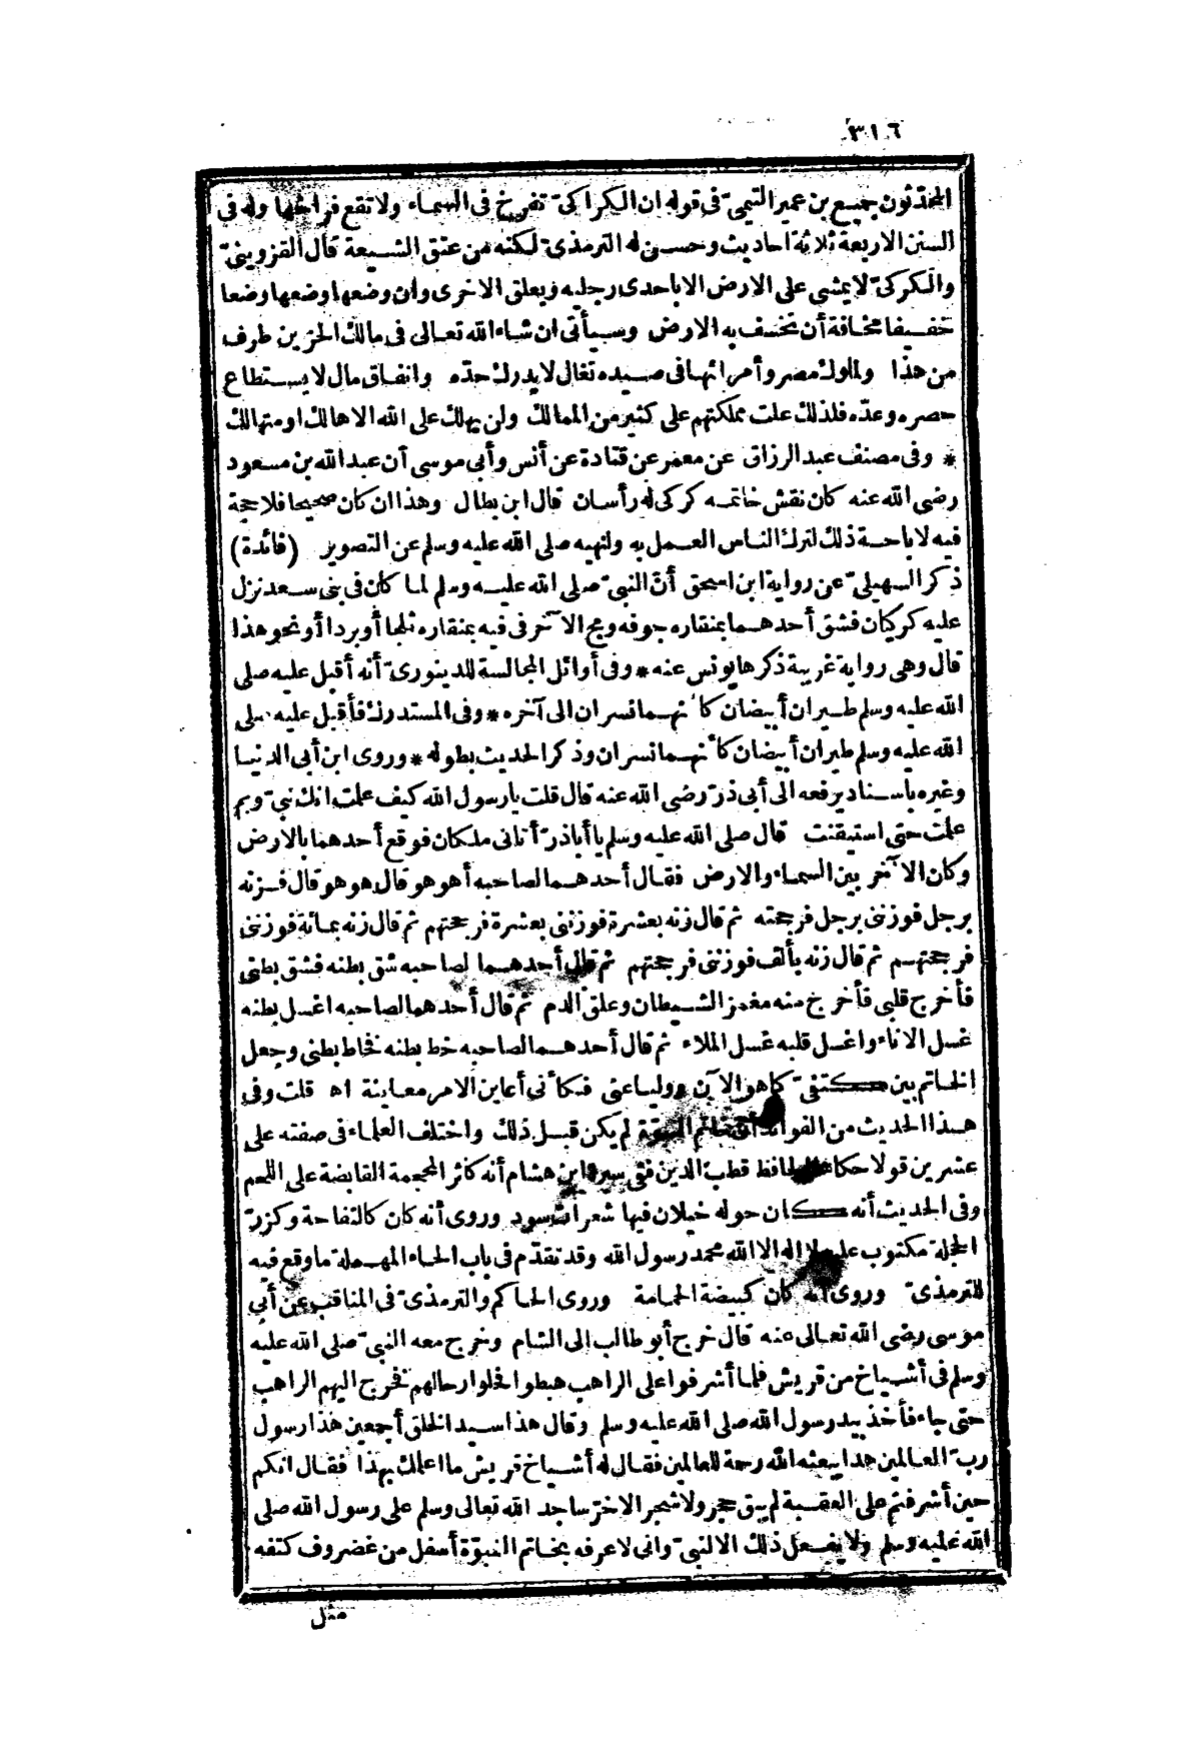 ٣١٦
المحدّثون جميع بن عمير التيمىّ فى قوله ان الكراكىّ تفرخ فى السماء ولا تقع فراخها وله فى
السنن الاربعة ثلاثة احاديث وحسن له الترمذىّ لكنه من عتق الشيعة قال القزوينىّ
والكركىّ لا يمشى على الارض الا باحدى رجليه ويعلق الاخرى وان وضعها وضعها وضعا
خفيفا مخافة أن تخسف به الارض وسيأتى ان شاء الله تعالى فى مالك الحزين طرف
من هذا ولملوك مصر وأمرائها فى صيده تغال لا يدرك حدّه وانفاق مال لا يستطاع
حصره وعدّه فلذلك علت مملكتهم على كثير من الممالك ولن يهلك على الله الا هالك او متهالك
* وفى مصنف عبد الرزاق عن معمر عن قتادة عن أنس وأبى موسى أن عبد الله بن مسعود
رضى الله عنه كان نقش خاتمه كركى له رأسان قال ابن بطال وهذا ان كان صحيحا فلا حجة
فيه لاباحة ذلك لترك الناس العمل به ولنهيه صلى الله عليه وسلم عن التصوير (فائدة)
ذكر السهيلىّ عن رواية ابن اسحق أنّ النبىّ صلى الله عليه وسلم لما كان فى بنى سعد نزل
عليه كركيان فشق أحدهما بمنقاره جوفه ومج الآخر فى فيه بمنقاره ثلجا أو بردا أو نحو هذا
قال وهى رواية غريبة ذكرها يونس عنه * وفى أوائل المجالسة للدينورىّ أنه أقبل عليه صلى
الله عليه وسلم طيران أبيضان كأنهما نسران الى آخره * وفى المستدرك فأقبل عليه صلى
الله عليه وسلم طيران أبيضان كأنهما نسران وذكر الحديث بطوله * وروى ابن أبى الدنيا
وغيره باسناد يرفعه الى أبى ذرّ رضى الله عنه قال قلت يا رسول الله كيف علمت انك نبىّ وبم
علمت حتى استيقنت قال صلى الله عليه وسلم يا أباذرّ أتانى ملكان فوقع أحدهما بالارض
وكان الآخر بين السماء والارض فقال أحدهما لصاحبه أهو هو قال هو هو قال فزنه
برجل فوزننى برجل فرجحته ثم قال زنه بعشرة فوزننى بعشرة فرجحتهم ثم قال زنه بمائة فوزننى
فرجحتهم ثم قال زنه بألف فوزننى فرجحتهم ثم قال أحدهما لصاحبه شق بطنه فشق بطنى
فأخرج قلبى فأخرج منه مغمز الشيطان وعلق الدم ثم قال أحدهما لصاحبه اغسل بطنه
غسل الاناء واغسل قلبه غسل الملاء ثم قال أحدهما لصاحبه خط بطنه فخاط بطنى وجعل
الخاتم بين كتفىّ كما هو الآن ووليا عنى فكأنى أعاين الامر معاينة اه قلت وفى
هذا الحديث من الفوائد أن خاتم النبوّة لم يكن قبل ذلك واختلف العلماء فى صفته على
عشرين قولا حكاها الحافظ قطب الدين ففى سيرة ابن هشام أنه كأثر المحجمة القابضة على اللحم
وفى الحديث أنه كان حوله خيلان فيها شعرات سود وروى أنه كان كالتفاحة وكزرّ
الحجلة مكتوب عليه لا اله الا الله محمد رسول الله وقد تقدّم فى باب الحاء المهملة ما وقع فيه
للترمذىّ وروى أنه كان كبيضة الحمامة وروى الحاكم والترمذىّ فى المناقب عن أبى
موسى رضى الله تعالى عنه قال خرج أبو طالب الى الشام وخرج معه النبىّ صلى الله عليه
وسلم فى أشياخ من قريش فلما أشرفوا على الراهب هبطوا فحلوا رحالهم فخرج اليهم الراهب
حتى جاء فأخذ بيد رسول الله صلى الله عليه وسلم وقال هذا سيد الخلق أجمعين هذا رسول
ربّ العالمين هذا يبعثه الله رحمة للعالمين فقال له أشياخ قريش ما اعلمك بهذا فقال انكم
حين أشرفتم على العقبة لم يبق حجر ولا شجر الا خرّ ساجد الله تعالى وسلم على رسول الله صلى
الله عليه وسلم ولا يفعل ذلك الا لنبىّ وانى لاعرفه بخاتم النبوّة أسفل من غضروف كتفه
مثل